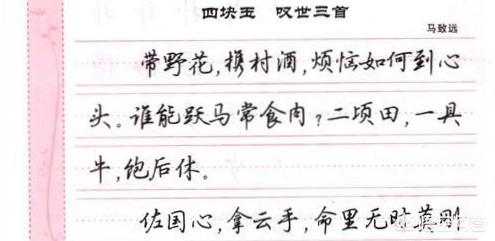 四块玉 叹世三首
马致远
带野花,携村酒,烦恼如何到心
头。谁能跃马常食肉?二顷田,一具
牛,饱后休。
佐国心,拿云手,命里无时莫刚